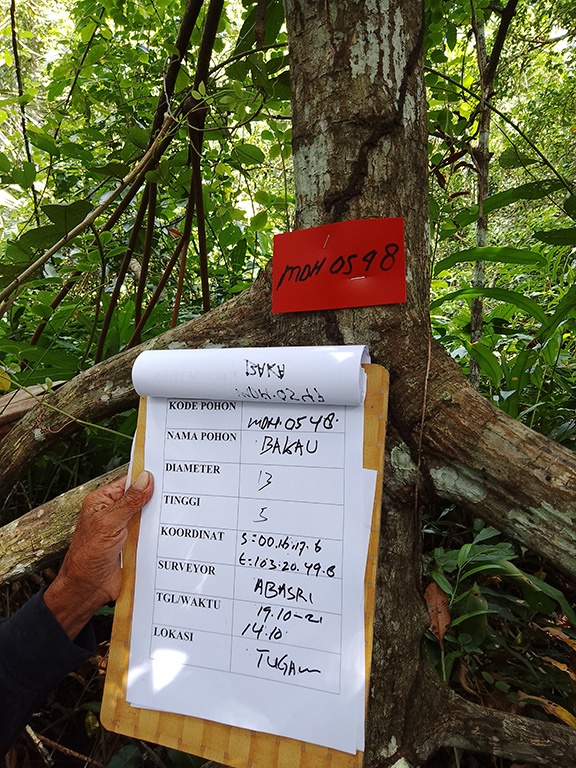 MDH 0598
KODE POHON MDH.0548.
NAMA POHON BAKAU
DIAMETER 13
TINGGI 5
KOORDINAT S:00.16.17.6
E:103.20.49.8
SURVEYOR ABASRI
TGL/WAKTU 19.10-21
14.10.
LOKASI TUGAU